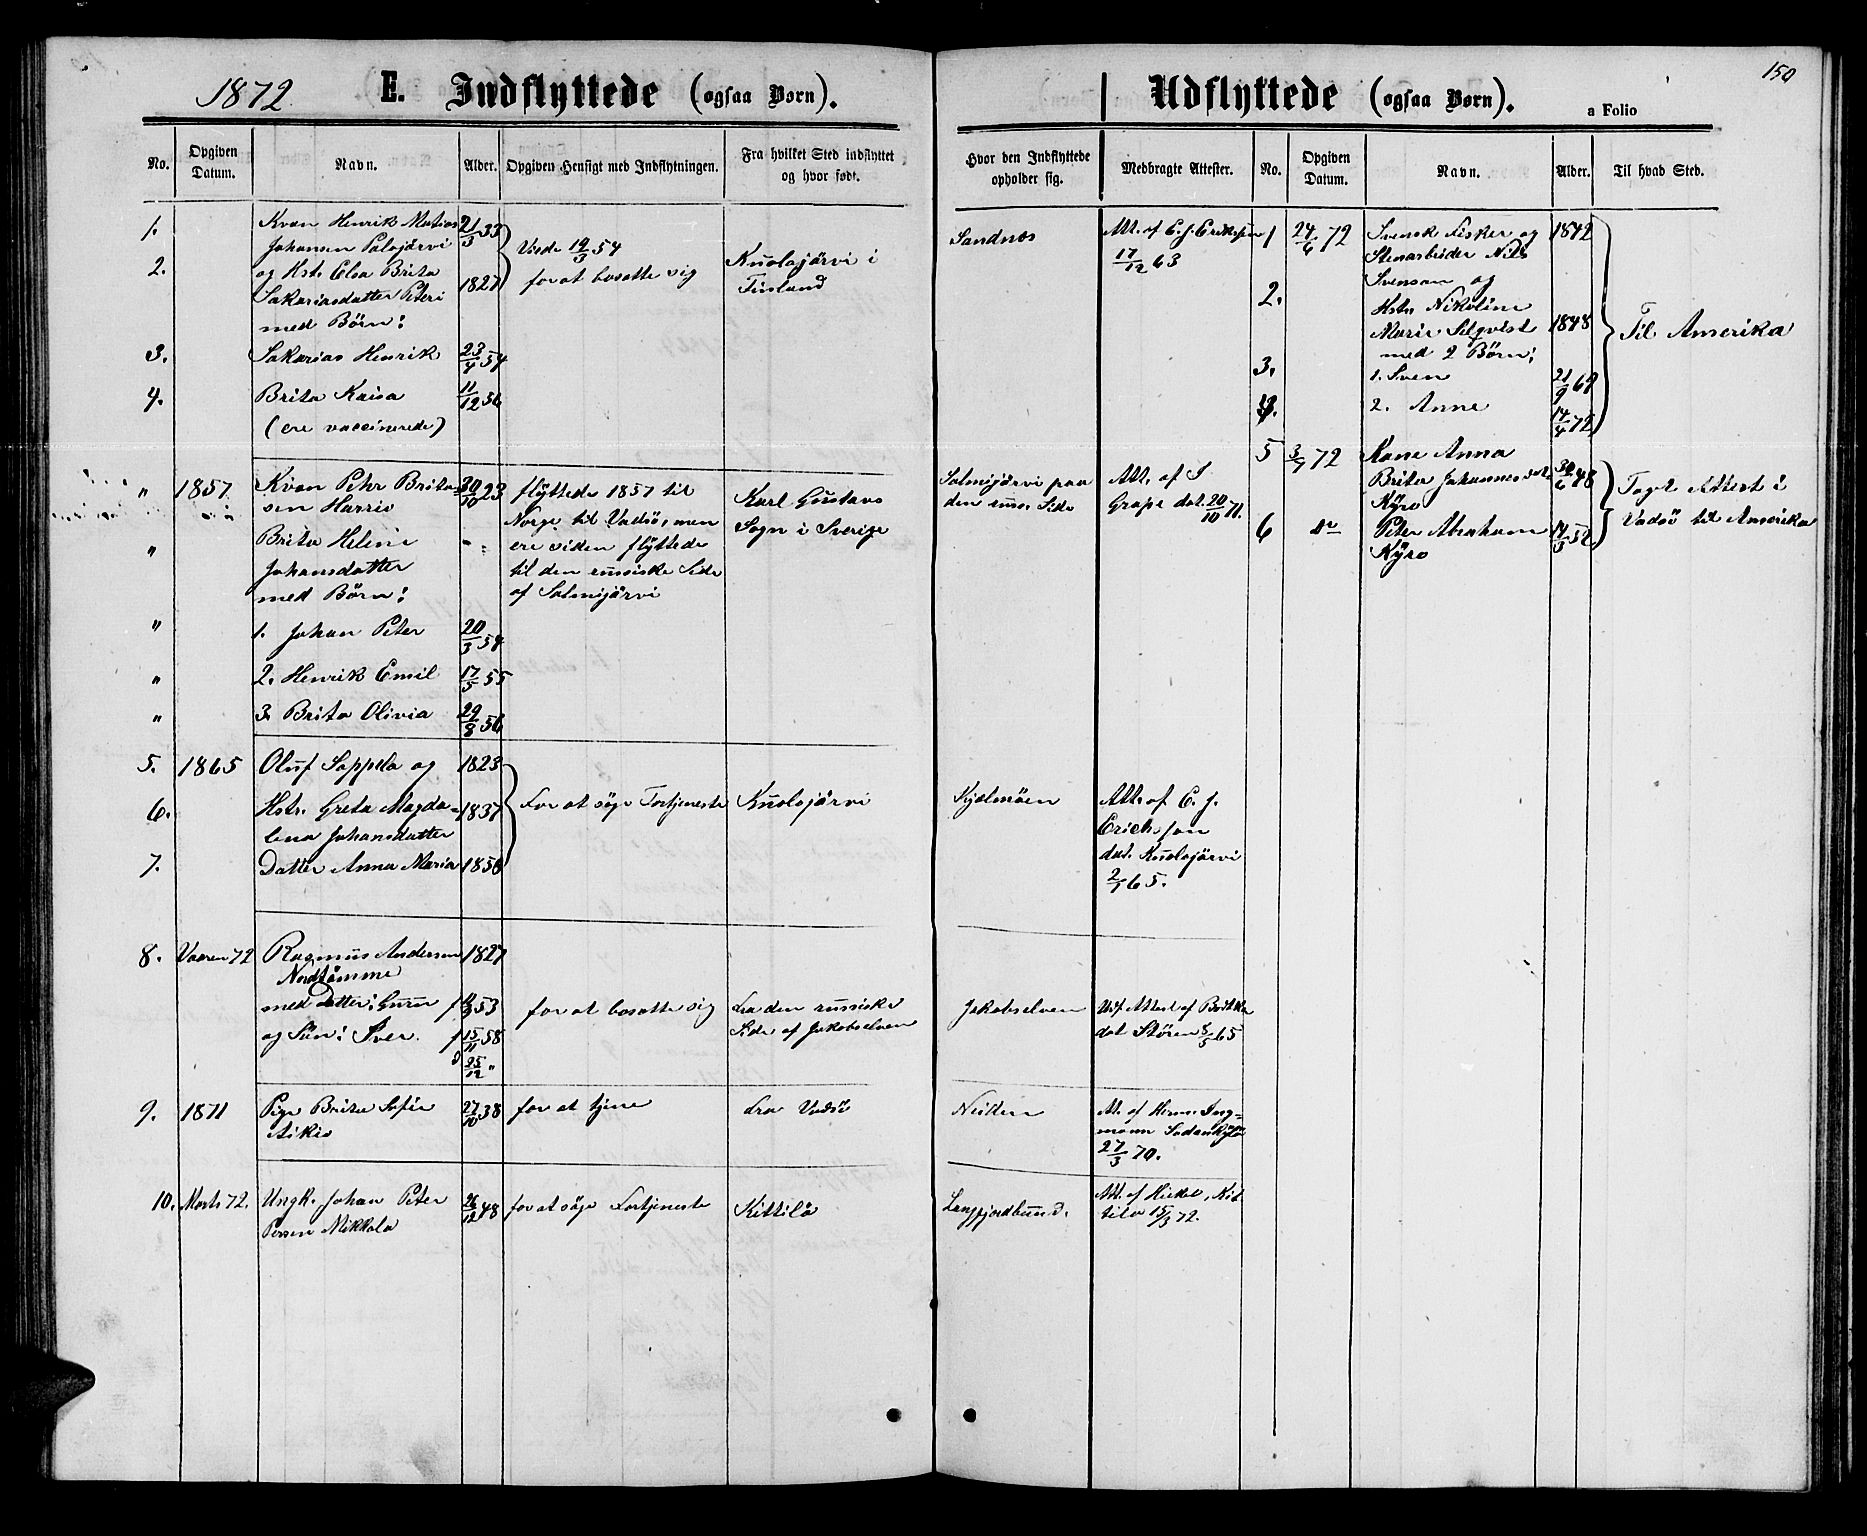 1872
E. Indflyttede (ogsaa Børn).
No.
Opgiven Datum.
Navn.
Alder.
Opgiven Hensigt med Indflytningen.
Fra hvilket Sted indflyttet og hvor født.
1.
Kvæn Henrik Matias
21/3 33
Johansen Palojärvi
Viede 19/3 54
2.
og Hst. Elsa Brita
1827
for at bosætte sig
Kuolajärvi i
Sakariasdatter Peteri
Finland
med Börn:
3.
Sakarias Henrik
23/4 54
4.
Brita Kaisa
11/12 56
(ere vaccinerede)
" 1857
Kvæn Pehr Brita-
30/10 23
flyttede 1857 til
Karl Gustavs
sen Harrio
Norge til Vadsö, men
Sogn i Sverige
" Brita Helene
ere siden flyttede
Johansdatter
til den russiske Side
med Börn:
af Salmijärvi
" 1. Johan Peter
20/3 54
" 2. Henrik Emil
17/5 55
" 3. Brita Olivia
29/8 56
5. 1865
Oluf Soppela og
1823
6.
Hstr. Greta Magda-
1837
For at söge Fortjeneste
Kuolajärvi
lena Johansdatter
7.
Datter Anna Maria
1858
8. Vaaren 72
Rasmus Andersen
1827
med Datter: Guru
53
for at bosætte sig
Fra den russiske
og Sön: Iver
f 15/11 58
Side af Jakobselven
d 25/12 "
9. 1871
Pige Brita Sofie
27/10 38
for at tjene
Fra Vadsö
Aikio
10. Marts 72.
Ungk. Johan Peter
26/12 48
for at söge Fortjeneste
Kittilä
Persen Mikkola
150
Udflyttede (ogsaa Børn).
a Folio
Hvor den Indflyttede opholder sig.
Medbragte Attester.
No.
Opgiven Datum.
Navn.
Alder.
Til hvad Sted.
Sandnes
Att. af E. J. Eriksson
17/12 63
Salmijärvi paa
den russ. Side
Att. af I
Grape dat. 20/10 71.
Kjelmöen
Att. af E. J.
Erichsson
dat. Kuolajärvi
2/1 65.
Jakobselven
dat Stören 5/5 65
Neiden
At. af Herm. Ing-
mann Sodankylä
27/3 70.
Langfjordbund.
Att. af Heikel, Kit-
tila 15/3 72.
1 24/6 72
Svensk Fisker og
1842
Stenarbeider Nils
Svenson og
2.
Hstr Nikoline
Marie Selqvist
1848
Til Amerika
med 2 Börn:
3.
1. Sven
21/9 69
4.
2. Anne
14/4 72
5 3/7 72
Kone Anna
Brita Johannesdtr
30/6 48
Kyrö
Tagt Attest i
Vadsö til Amerika
6 do
Peter Abraham
14/3 52
Kyrö